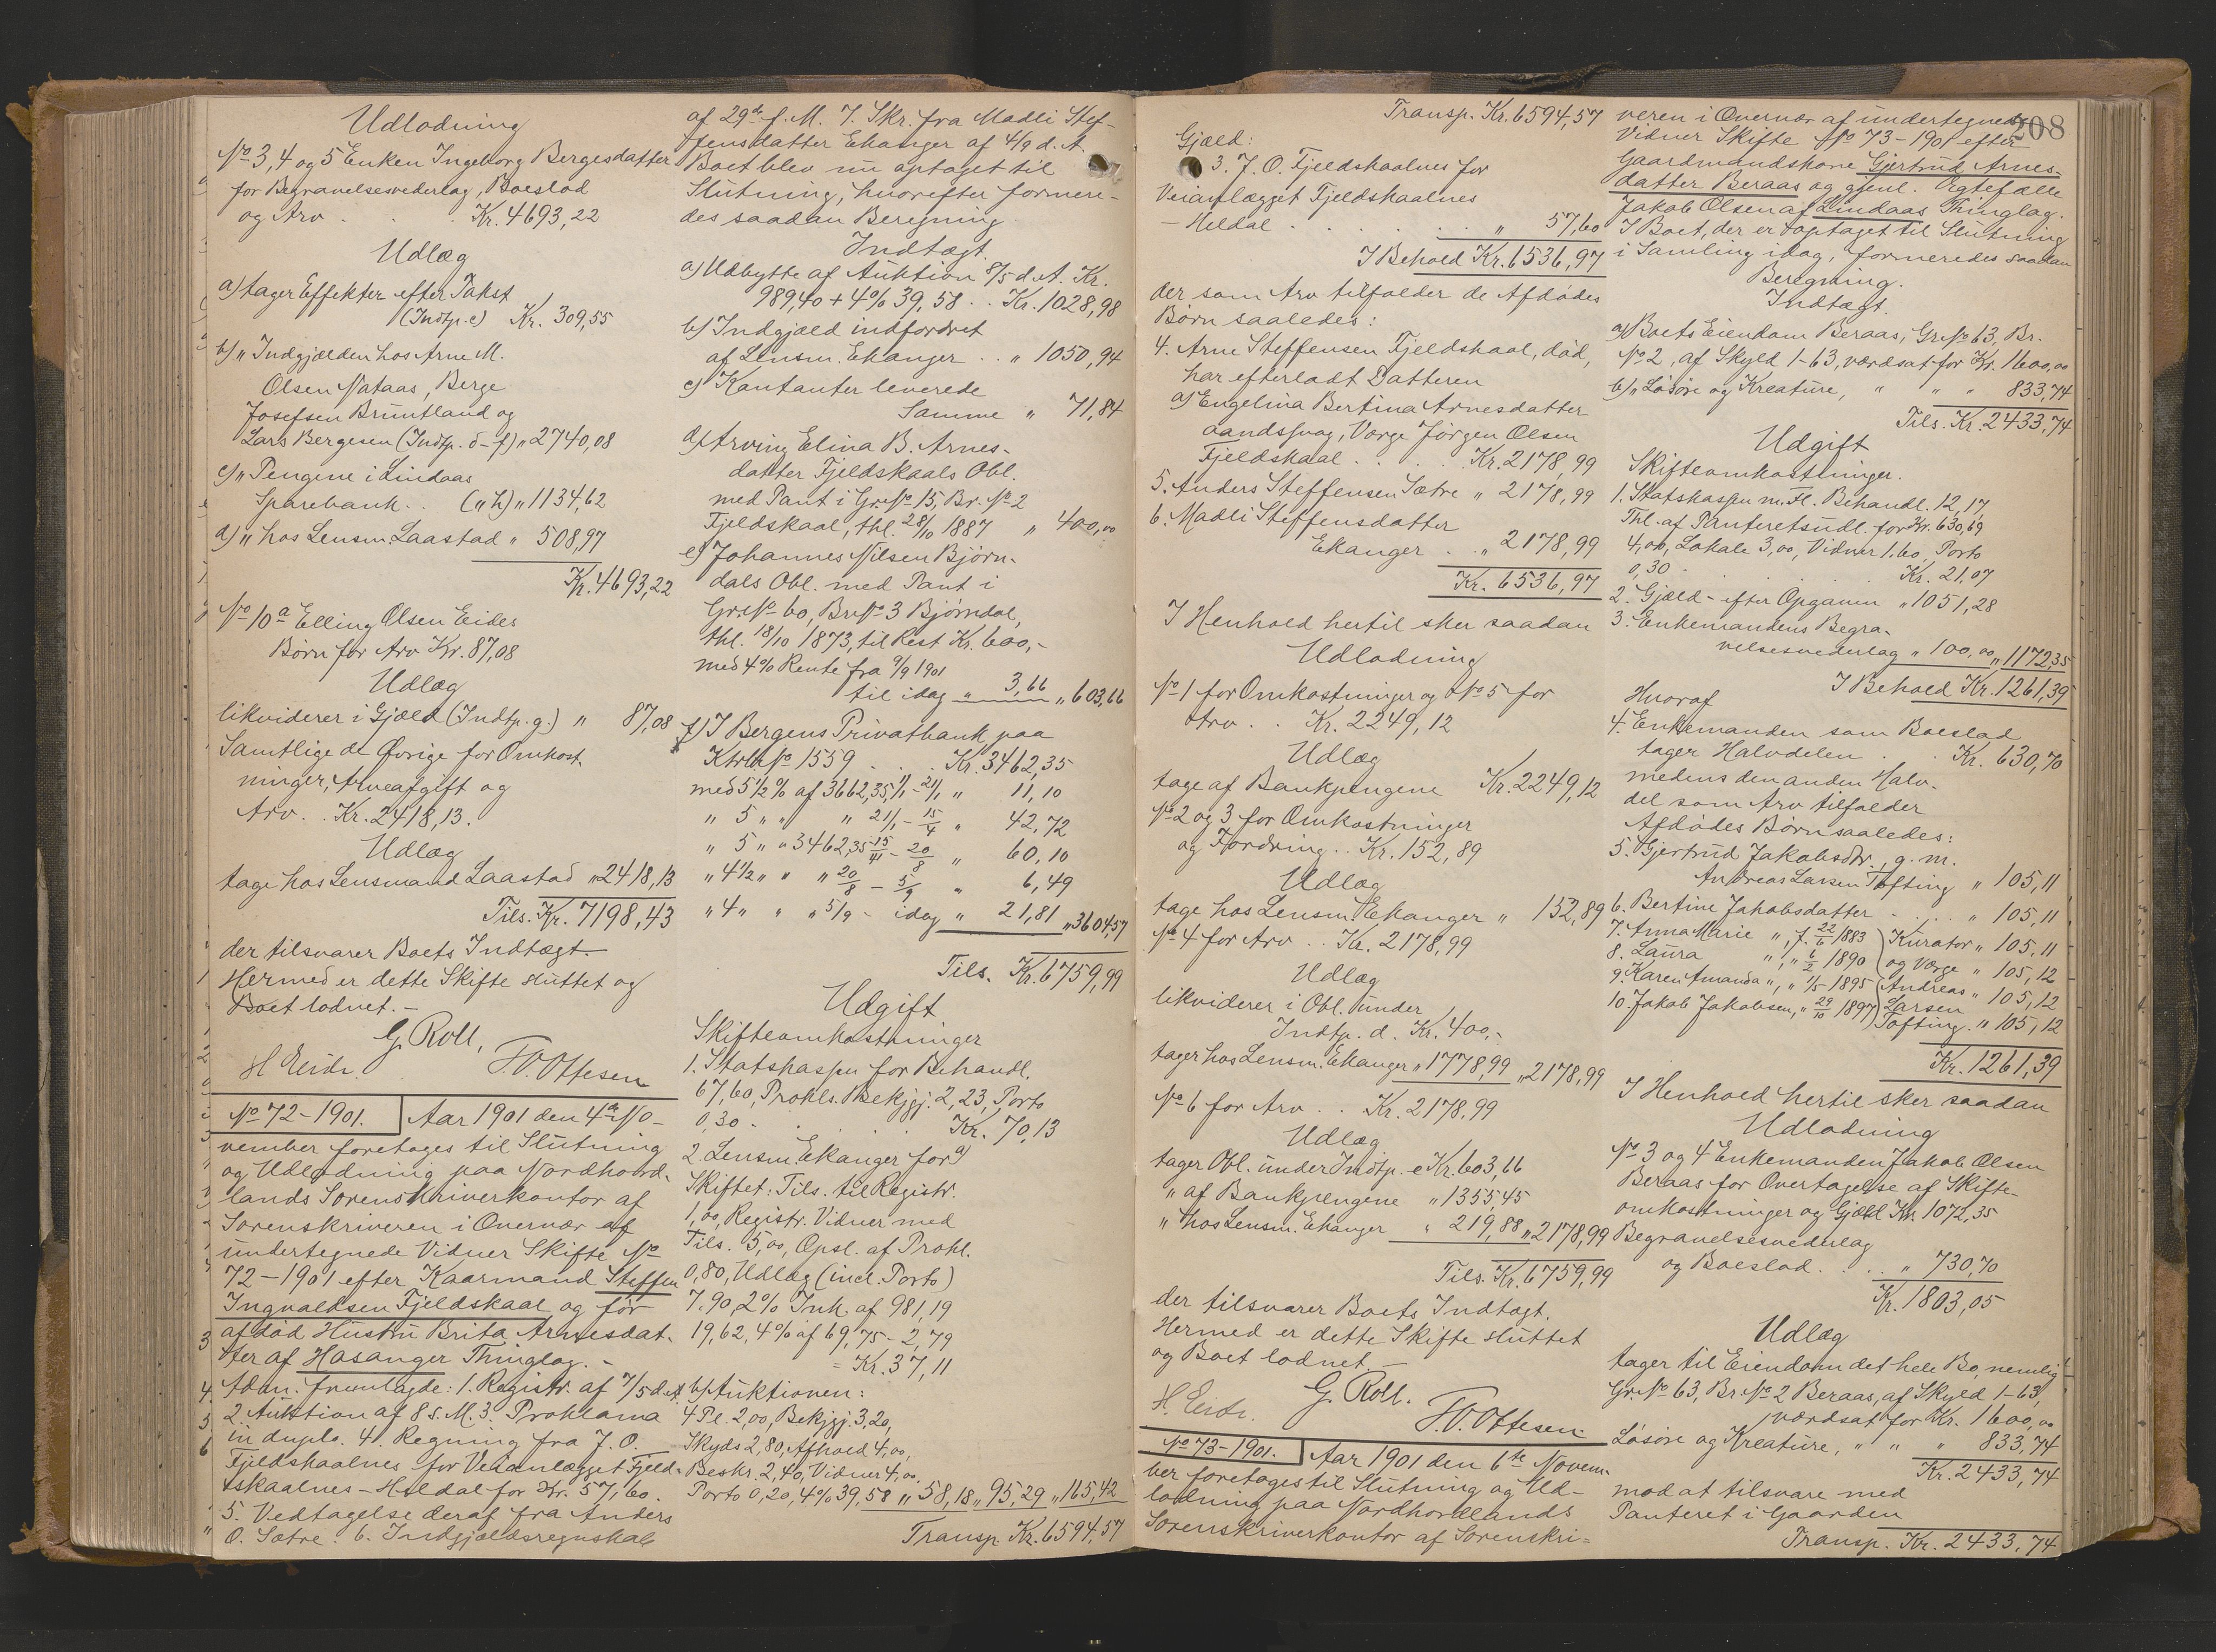 Udlodning
No 3, 4 og 5 Enken Ingeborg Bergesdatter
for Begravelsesvederlag, Boeslod
og Arv . . Kr. 4693,22
Udlæg
a) tager Effekter efter Takst
(Indtp. c) Kr. 309,55
b) " Indgjælden hos Arne M.
Olsen Nataas, Berge
Josefsen Bruntland og
Lars Bergesen (Indtp. d-f) " 2740,08
c) " Pengene i Lindaas
Sparebank . . (" h) " 1134,62
d) " hos Lensm. Laastad " 508,97
Kr. 4693,22
No 10a Elling Olsen Eides
Børn for Arv Kr. 87,08
Udlæg
likviderer i Gjæld (Indtp. g.) " 87,08
Samtlige de Øvrige for Omkost-
ninger, Arveafgift og
Arv . . Kr. 2418,13.
Udlæg
tage hos Lensmand Laastad " 2418,13
Tils. Kr. 7198,43
der tilsvarer Boets Indtægt.
Hermed er dette Skifte sluttet og
Boet lodnet. -
G. Roll,
H Eide. T.O. Ottesen
No 72 - 1901. Aar 1901 den 4de No-
vember foretoges til Slutning
og Udlodning paa Nordhord-
lands Sorenskriverkontor af
Sorenskriveren i Overvær af
undertegnede Vidner Skifte No
72 - 1901 efter Kaarmand Steffen
Ingvaldsen Fjeldskaal og før
afdød Hustru Brita Arnesdat-
ter af Hosanger Thinglag. -
Adm. fremlagde: 1. Registr. af 7/5 d. A.
2 Auktion af 8 s. M. 3. Proklama
in duplo. 4. Regning fra J. O.
Fjeldskaalnes for Veianlægget Fjeld-
skaalnes - Heldal for Kr. 57,60.
5. Vedtagelse deraf fra Anders
O. Sætre. 6. Indgjældsregnskab
af 29de f. M. 7. Skr. fra Madli Stef-
fensdatter Ekanger af 4/9 d. A.
Boet blev nu optaget til
Slutning, hvorefter formere-
des saadan Beregning
Indtægt.
a) Udbytte af Auktion 8/5 d. A. Kr.
989,40 + 4% 39,58 . . Kr. 1028,98
b) Indgjæld indfordret
af Lensm. Ekanger . . " 1050,94
c) Kontanter leverede
Samme " 71,84
d) Arving Elina B. Arnes-
datter Fjeldskaals Obl.
med Pant i Gr. No 15, Br. No 2
Fjeldskaal, thl. 28/10 1887 " 400,00
e) Johannes Nilsen Bjørn-
dals Obl. med Pant i
Gr. No 60, Br. No 3 Bjørndal,
thl. 18/10 1873, til Rest Kr. 600,-
med 4% Rente fra 9/9 1901
til idag " 3,66 " 603,66
f) I Bergens Privatbank paa
Ktrb. No 1559 . . . Kr. 3462,35
med 5 1/2 % af 3662,35 1/1 - 21/1 " 11,10
" 5 " " " 21/1 - 15/4 " 42,72
" 5 " " 3462,35 15/4 - 20/8 " 60,10
" 4 1/2 " " " 20/8 - 5/9 " 6,49
" 4 " " " 5/9 - idag " 21,81 " 3604,57
Tils. Kr. 6759,99
Udgift
Skifteomkostninger
1. Statskassen for Behandl.
67,60, Prokls. Bekjgj. 2,23, Porto
0,30 . . . . Kr. 70,13
2. Lensm. Ekanger for a)
Skiftet: Tils. til Registr.
1,00, Registr. Vidner med
Tils. 5,00, Opsl. af Prokl.
0,80, Udlæg (incl. Porto)
7.90, 2% Ink. af 981,19
19,62, 4% af 69,75 - 2,79
= Kr. 37,11
b) Auktionen:
4 Pl. 2,00, Bekjgj. 3,20,
Skyds 2,80, Afhold 4,00,
Beskr. 2,40, Vidner 4,00,
Porto 0,20, 4% 39,58 " 58,18 " 95,29 " 165,42
Transp. Kr. 6594,57
Transp. Kr. 6594,57
Gjæld:
3. J. O. Fjeldskaalnes for
Veianlægget Fjeldskaalnes
- Heldal . . . . . " 57,60
I Behold Kr. 6536,97
der som Arv tilfalder de Afdødes
Børn saaledes:
4. Arne Steffensen Fjeldskaal, død,
har efterladt Datteren
a) Engelina Bertina Arnesdatter
aandssvag, Værge Jørgen Olsen
Fjeldskaal . . . . Kr. 2178,99
5. Anders Steffensen Sætre " 2178,99
6. Madli Steffensdatter
Ekanger . . " 2178,99
Kr. 6536,97
I Henhold hertil sker saadan
Udlodning
No 1 for Omkostninger og No 5 for
Arv . . Kr. 2249,12
Udlæg
tage af Bankpengene Kr. 2249,12
No 2 og 3 for Omkostninger
og Fordring . . Kr. 152,89
Udlæg
tage hos Lensm. Ekanger " 152,89
No 4 for Arv . . Kr. 2178,99
Udlæg
likviderer i Obl. under
Indtp. d. Kr. 400,-
tager hos Lensm. Ekanger " 1778,99 " 2178,99
No 6 for Arv . . Kr. 2178.99
Udlæg
tager Obl. under Indtp. e Kr. 603,66
" af Bankpengene " 1355,45
" hos Lensm. Ekanger " 219,88 " 2178,99
Tils. Kr. 6759,99
der tilsvarer Boets Indtægt.
Hermed er dette Skifte sluttet
og Boet lodnet. -
G. Roll.
H. Eide. T.O. Ottesen.
No 73 - 1901. Aar 1901 den 6te Novem-
ber foretoges til Slutning og Ud-
lodning paa Nordhordlands
Sorenskriverkontor af Sorenskri-
208
veren i Overvær af undertegnede
Vidner Skifte No 73 - 1901 efter
Gaardmandskone Gjertrud Arnes-
datter Beraas og gjenl. Ægtefælle
Jakob Olsen af Lindaas Thinglag.
I Boet, der er optaget til Slutning
i Samling idag, formeredes saadan
Beregning.
Indtægt.
a) Boets Eiendom Beraas, Gr. No 63, Br.
No 2, af Skyld 1-63, værdsat for Kr. 1600,00
b) " Løsøre og Kreature, " " " 833,74
Tils. Kr. 2433,74
Udgift
Skifteomkostninger.
1. Statskassen m. Fl. Behandl. 12,17,
Thl. af Panteretsudl. for Kr. 630,69
4,00, Lokale 3,00, Vidner 1.60, Porto
0,30 . . . . Kr. 21,07
2. Gjæld - efter Opgaven " 1051,28
3. Enkemandens Begra-
velsesvederlag " 100,00 " 1172,35
I Behold Kr. 1261,39
Hvoraf
4. Enkemanden som Boeslod
tager Halvdelen . . Kr. 630,70
medens den anden Halv-
del som Arv tilfalder
Afdødes Børn saaledes:
5. Gjertrud Jakobsdtr., g. m.
Andreas Larsen Tofting " 105,11
6. Bertine Jakobsdatter . . . " 105,11
7. Anna Marie ", f. 22/6 1883 Kurator " 105,11
8. Laura ", " 6/2 1890 og Værge " 105,12
9. Karen Amanda ", " 1/5 1895 Andreas " 105,12
10. Jakob Jakobsen, " 29/10 1897 Larsen
Tofting. " 105,12
Kr. 1261,39
I Henhold hertil sker saadan
Udlodning
No 3 og 4 Enkemanden Jakob Olsen
Beraas for Overtagelse af Skifte-
omkostninger og Gjæld Kr. 1072,35
Begravelsesvederlag
og Boeslod . . . " 730,70
Kr. 1803,05
Udlæg
tager til Eiendom det hele Bo, nemlig
Gr. No 63, Br. No 2 Beraas, af Skyld 1-63,
værdsat for Kr. 1600,00
Løsøre og Kreature, " " " 833,74
Kr. 2433,74
mod at tilsvare med
Panteret i Gaarden
Transp. Kr. 2433,74